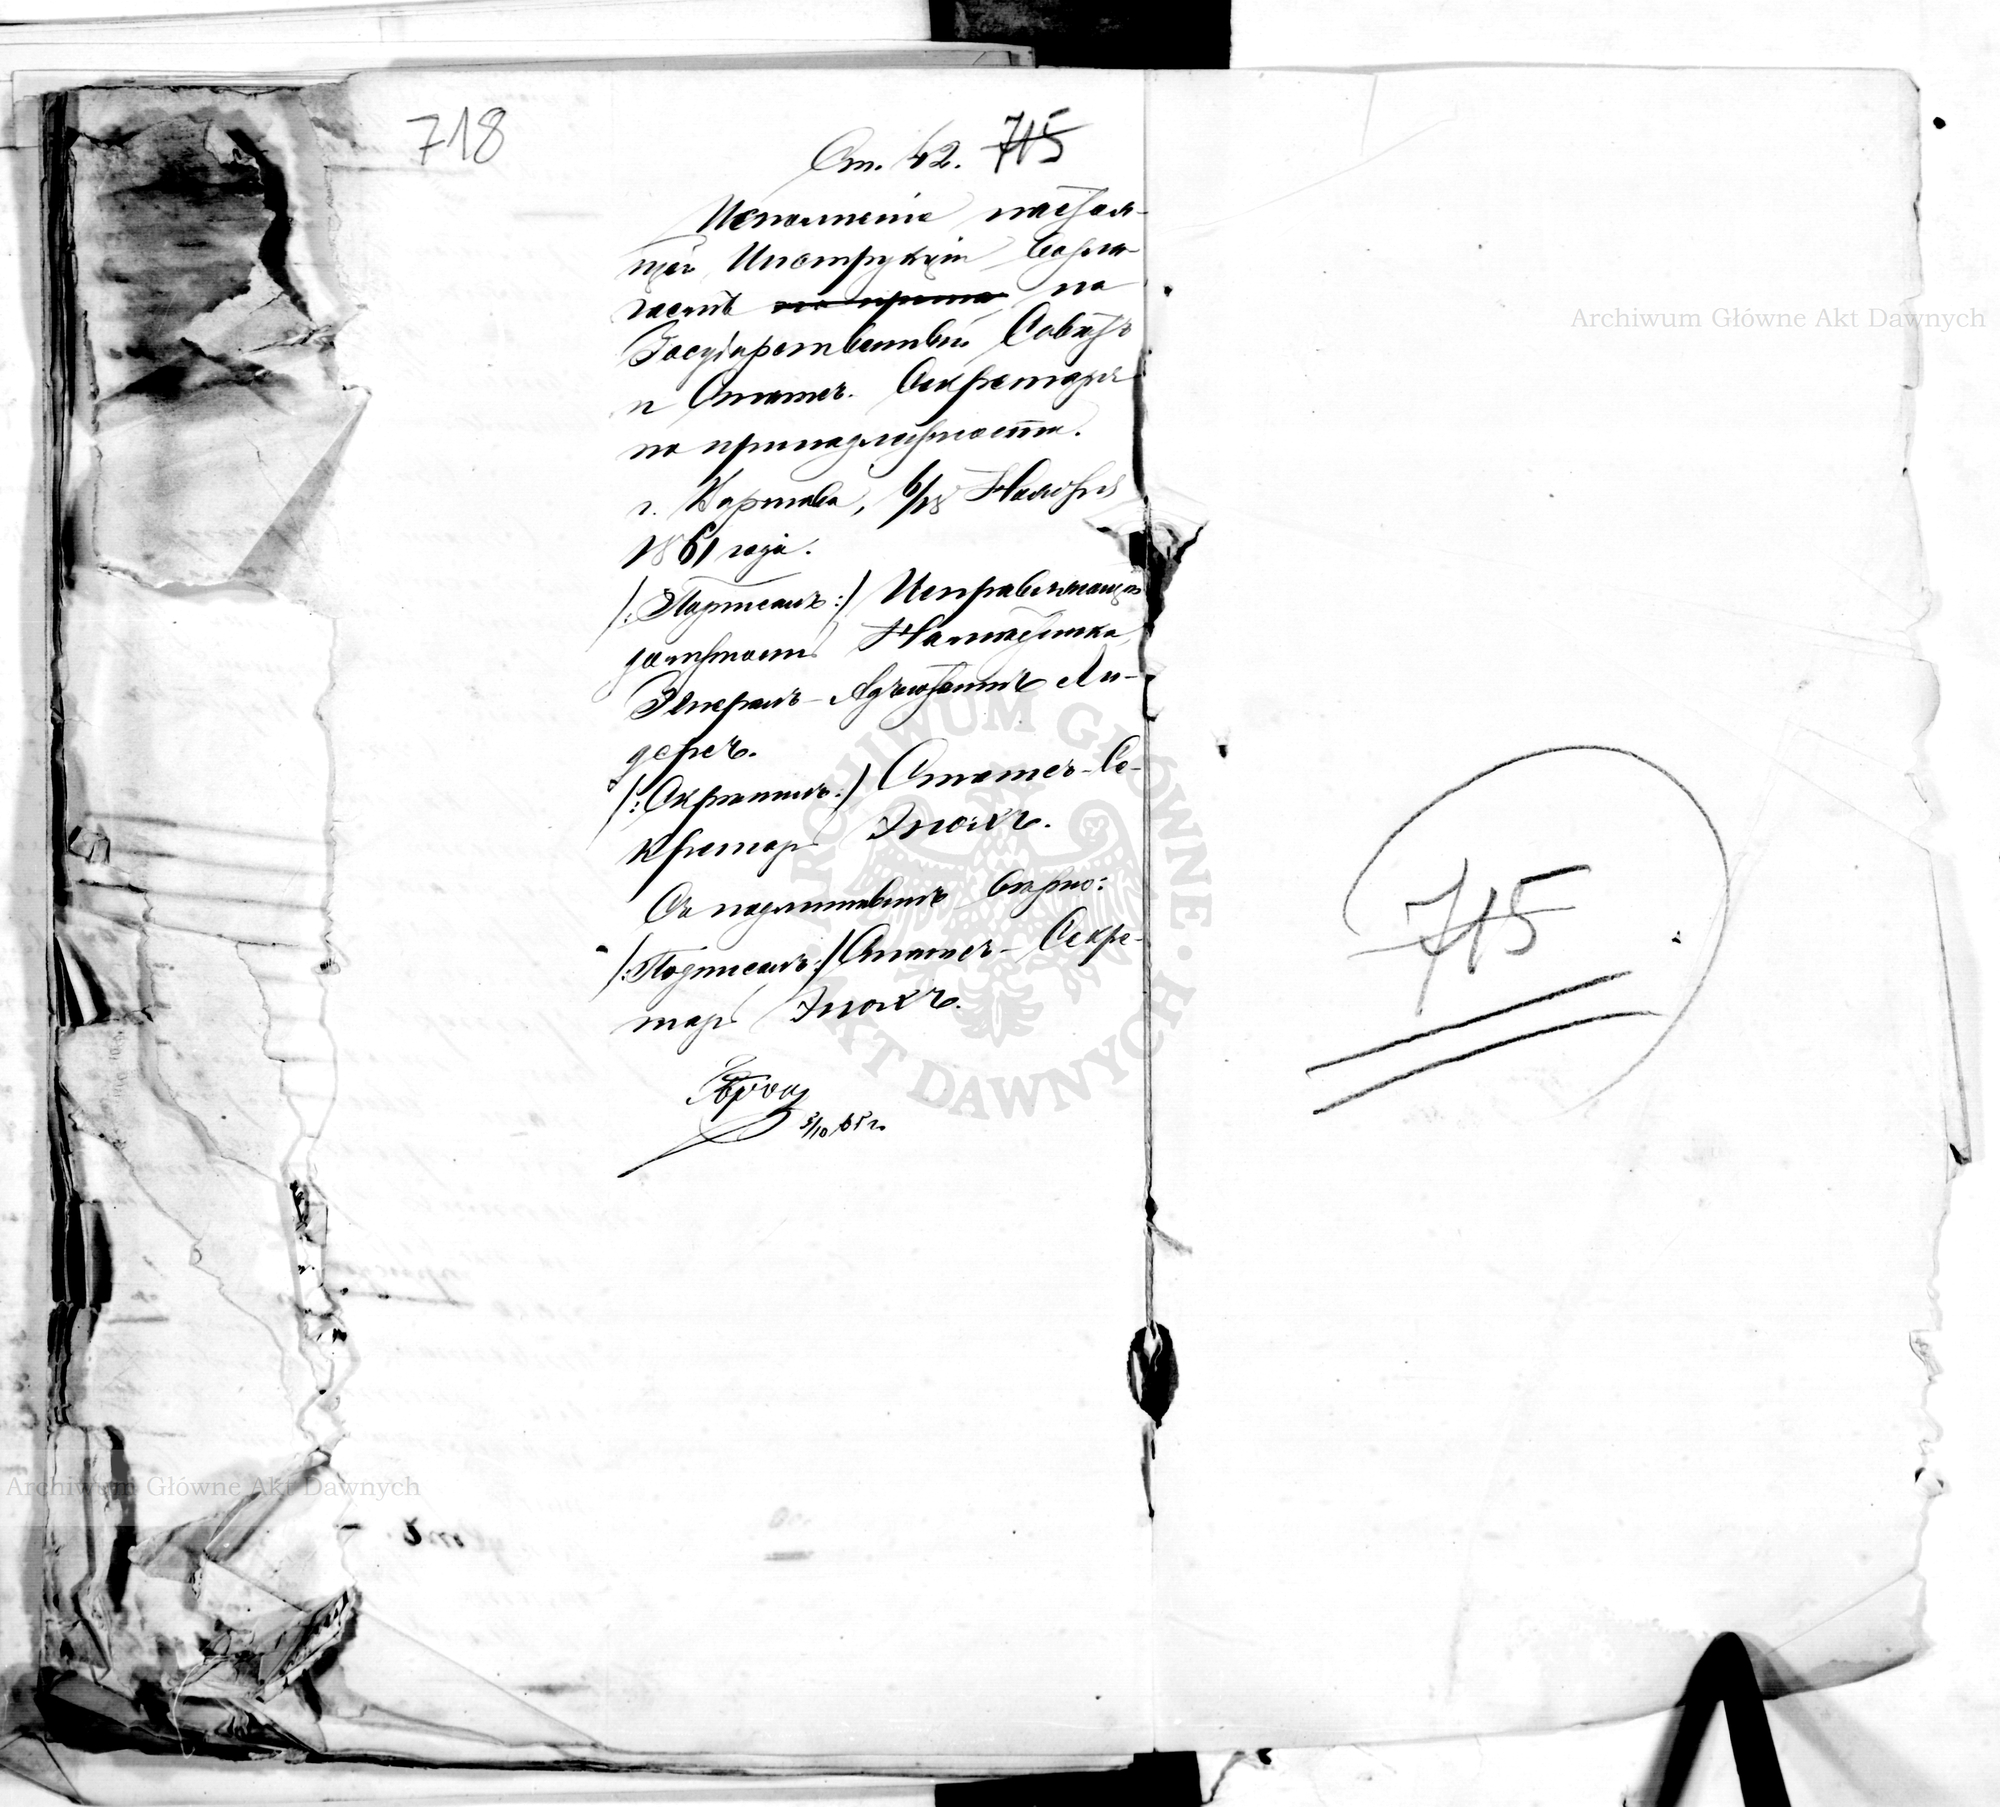 718
Ст. 42. 715
Исполненіе настоя-
щей Инструкціи возла-
гаемъ на
Государственный Совѣтъ
и Статсъ. Секретаря
по принадлежности.
г. Варшава, 6/18 Ноября
1861 года.
/:Подписалъ:/ Исправляющій
должность Намѣстника,
Генералъ-Адъютантъ Ли-
дерсъ.
/:Скрѣпилъ:/ Статсъ-Се-
кретарь Энохъ.
Съ подлиннымъ вѣрно:
/:Подписалъ:/ Статсъ-Секре-
тарь Энохъ.
3/10 65 г.
715
Archiwum Główne Akt Dawnych
Archiwum Główne Akt Dawnych
ARCHIWUM GŁÓWNE AKT DAWNYCH